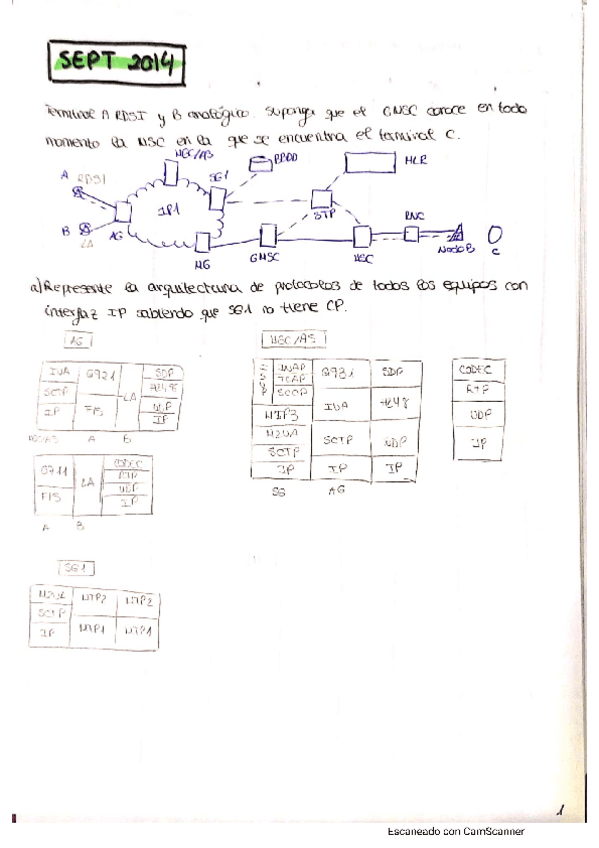 SEPT 2014
Terminal A RDSI y B analógico. Suponga que el GMSC conoce en todo
momento la MSC en la que se encuentra el terminal C.
MGC/AS
BBDD
HLR
A RDSI
SG1
IP1
STP
RNC
B
LA
AG
MG
GMSC
MSC
Nodo B
C
a) Represente la arquitectura de protocolos de todos los equipos con
interfaz IP sabiendo que SG1 no tiene CP.
AG
MGC/AS
IUA
SCTP
IP
FIS
LA
SDP
UDP
IP
A
B
ISUP
INAP
TCAP
SCCP
MTP3
M2UA
SCTP
IP
Q931
IUA
SCTP
IP
SDP
H248
UDP
IP
SG
AG
CODEC
RTP
UDP
IP
G711
FIS
LA
CODEC
RTP
UDP
IP
A
B
SG1
M2UA
MTP2
MTP2
SCTP
IP
MTP1
MTP1
1
Escaneado con CamScanner